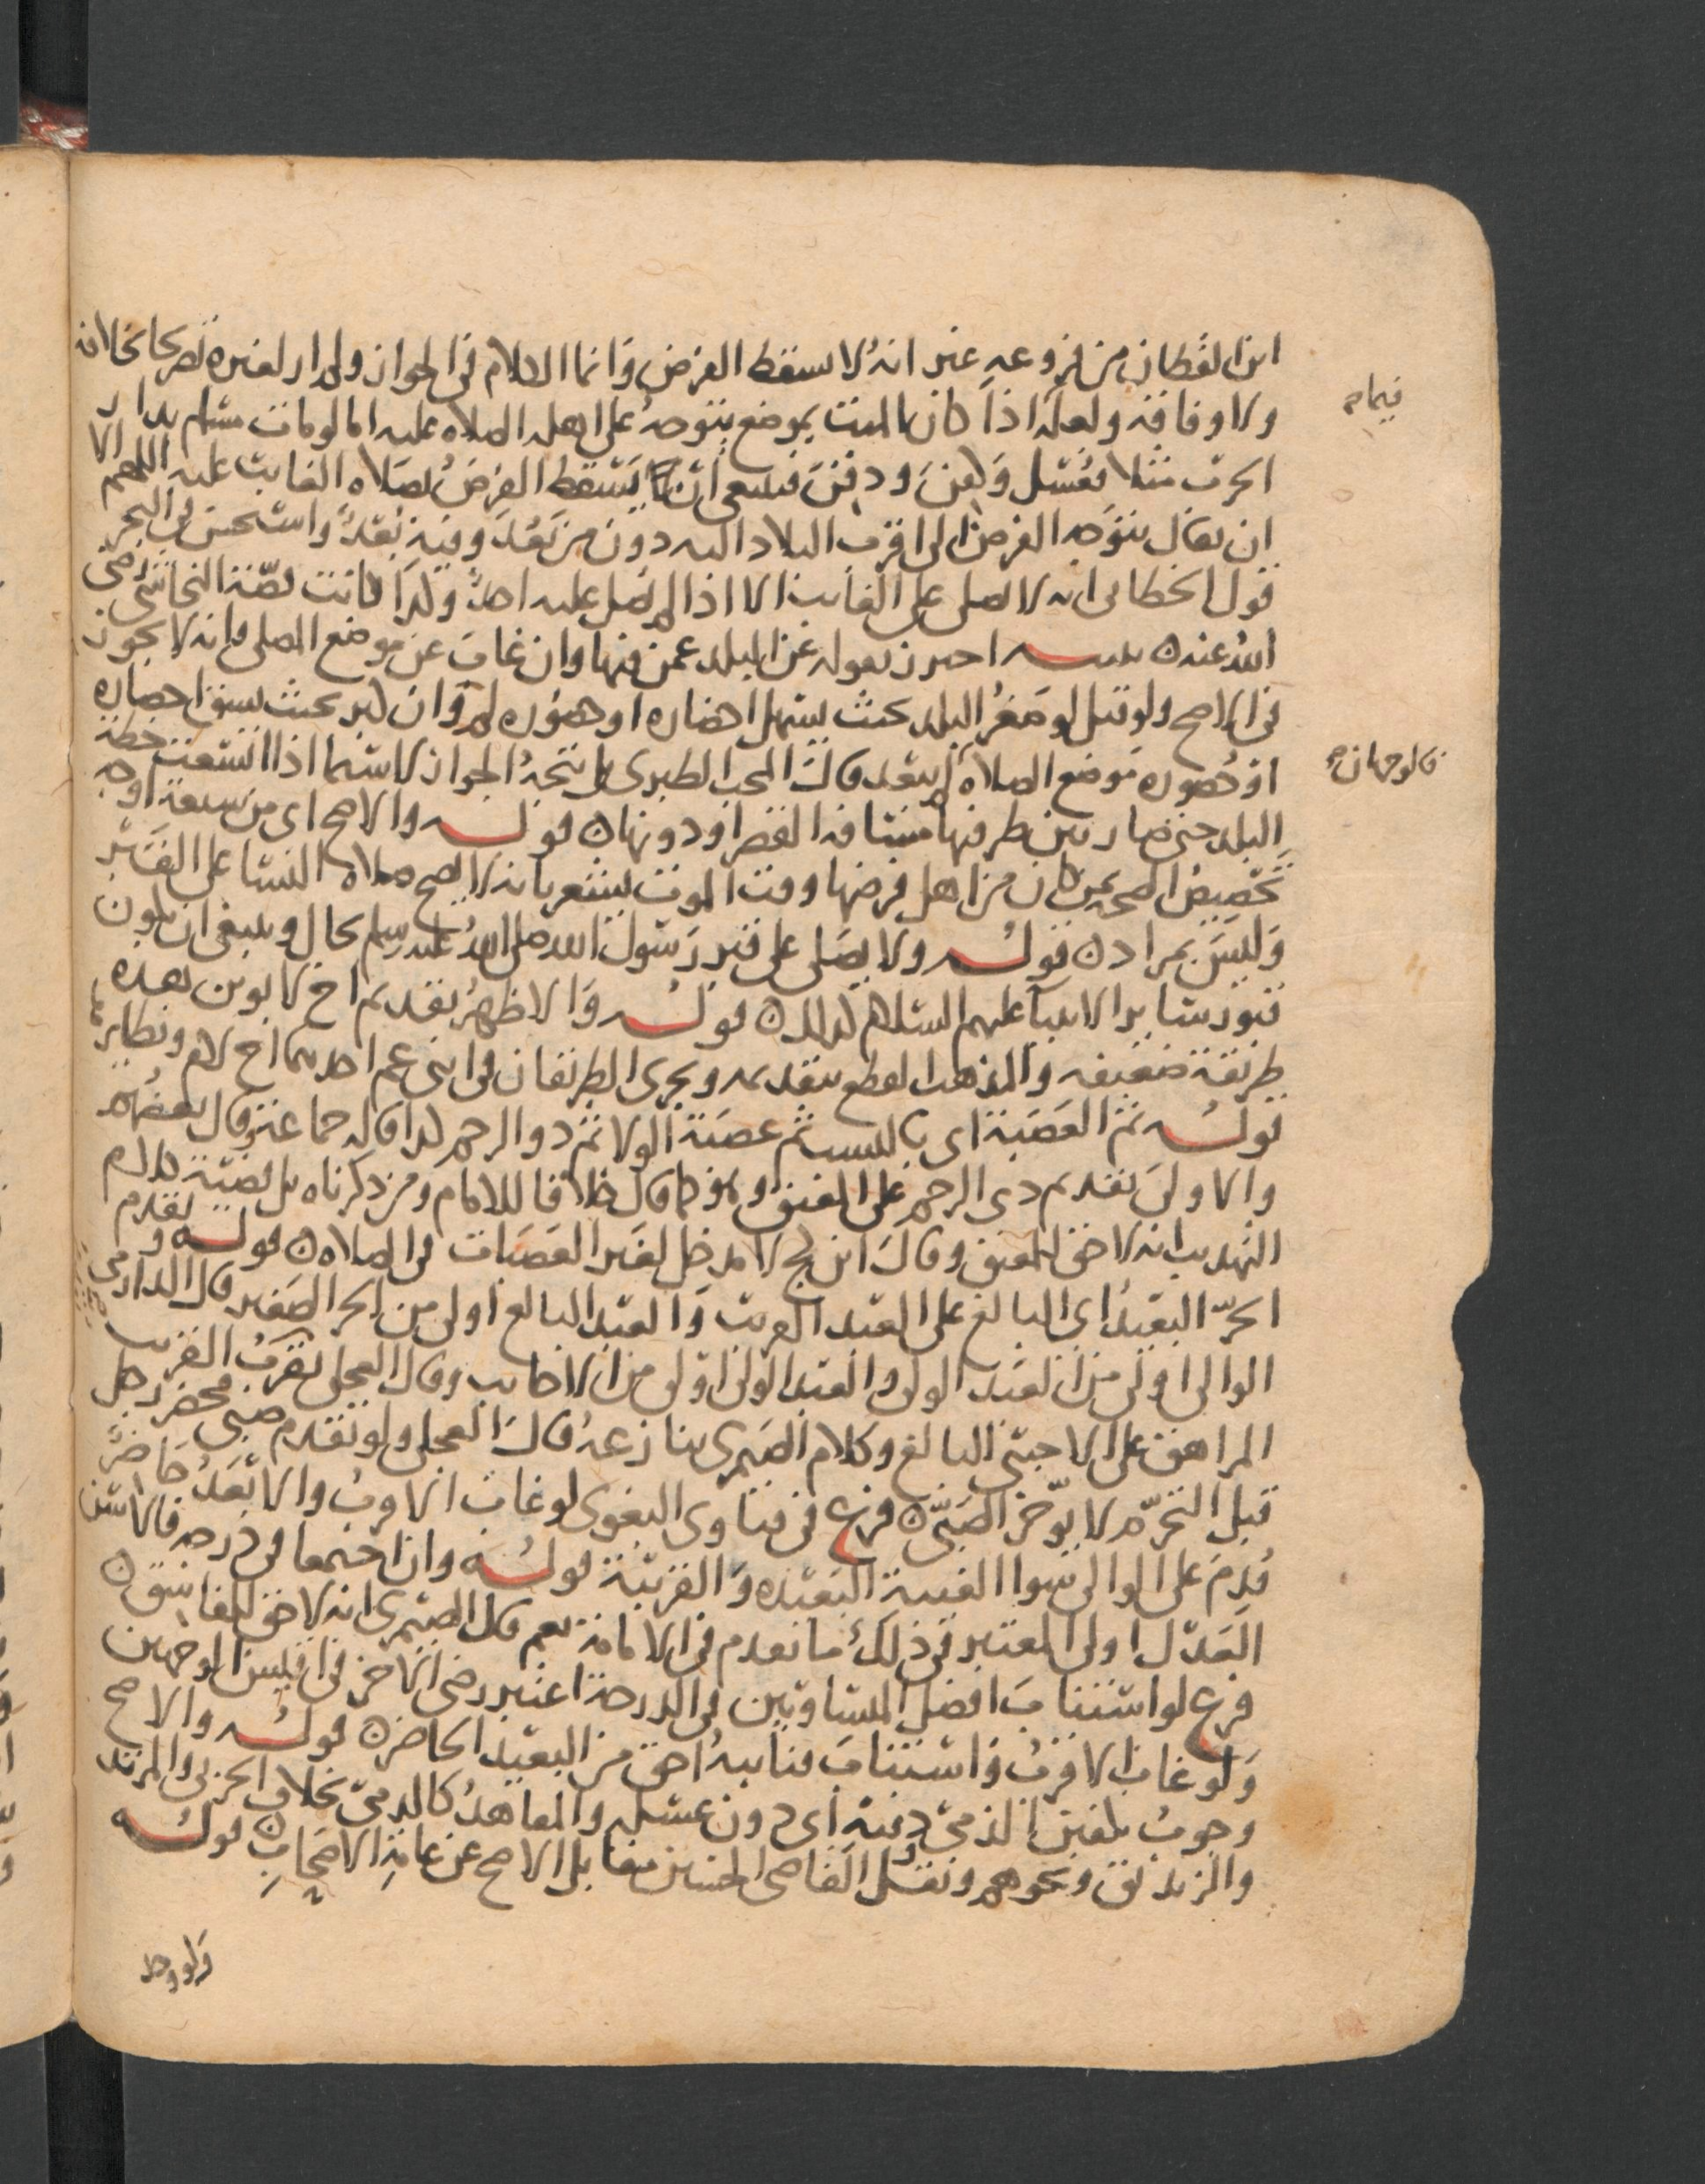 ابن القطان من فروعه عند انه لا يسقط الفرض وانما الكلام في الجواز ولم ار لغيره تصريحا بخلافه
فيما
ولا وفاقه ولعله اذا كان الميت بموضع يتوجه على اهله الصلاة عليه اما لو مات مسلم بدار
الحرب مثلا فغسل وكفن ودفن فينبغي ان يسقط الفرض بصلاة الغائب عليه اللهم الا
ان يقال يتوجه الفرض الى اقرب البلاد اليه دون من بعد وفيه بعد واستحسن في البحر
قول الخطابي انه لا يصلى على الغائب الا اذا لم يصل عليه احد وكذا كانت قصة النجاشي رضي
الله عنه تنبيه احترز بقوله عن البلد عمن فيها وان غاب عن موضع المصلي فانه لا يجوز
في الاصح ولو قيل لو صغر البلد بحيث يسهل احضاره او حضوره لم وان كبر بحيث يشق احضاره
فالوجهان
او حضوره موضع الصلاة لم يبعد قال المحب الطبري بل يتجه الجواز لا سيما اذا اتسعت خطة
البلد حتى صار بين طرفيها مسافة القصر او دونها قوله والاصح اي من سبعة اوجه
تخصيص الصحة بمن كان من اهل فرضها وقت الموت يشعر بانه لا يصح صلاة النساء على القبر
وليس بمراد قوله ولا يصلى على قبر رسول الله صلى الله عليه وسلم بحال وينبغي ان يكون
قبور سائر الانبيا عليهم السلام كذلك قوله والاظهر تقديم اخ لابوين هذه
طريقة ضعيفة والمذهب القطع بتقديمه ويجري الطريقان في ابني عم احدهما اخ لام ونظايرها
قوله ثم العصبة اي بالنسب ثم عصبة الولا ثم ذو الرحم كذا قاله جماعة وقال بعضهم
والاولى تقديم ذي الرحم على المعتق وهو كما قال خلافا للامام ومن ذكرناه بل قضية كلام
التهذيب انه لا حق للمعتق وقال ابن كج لا مدخل لغير العصبات في الصلاة قوله ويقدم
الحر البعيد اي البالغ على العبد القريب والعبد البالغ اولى من الحر الصغير قال الدارمي
الوالي اولى من العبد الولي والعبد الولي اولى من الاجانب وقال العجلي يقرب القريب
المراهق على الاجنبي البالغ وكلام الصيمري ينازعه قال العجلي ولو تقدم صبي فحضر رجل
قبل التحرم لا يؤخر الصبي فرع في فتاوى البغوي لو غاب الاقرب والابعد حاضر
قدم على الوالي سوا الغيبة البعيدة والقريبة قوله وان اجتمعا في درجة فالاسن
العدل اولى المعتبر في ذلك ما تقدم في الامامة نعم قال الصيمري انه لا حق للفاسق
فرع لو استناب افضل المتساويين في الدرجة اعتبر رضى الاخر في اقيس الوجهين
ولو غاب الاقرب فاستناب فنايبه احق من البعيد الحاضر قوله والاصح
وجوب تكفين الذمي ودفنه اي دون غسله والمعاهد كالذمي بخلاف الحربي والمرتد
والزنديق ونحوهم ونقل القاضي الحسين مقابل الاصح عن عامة الاصحاب قوله
ولو وجد